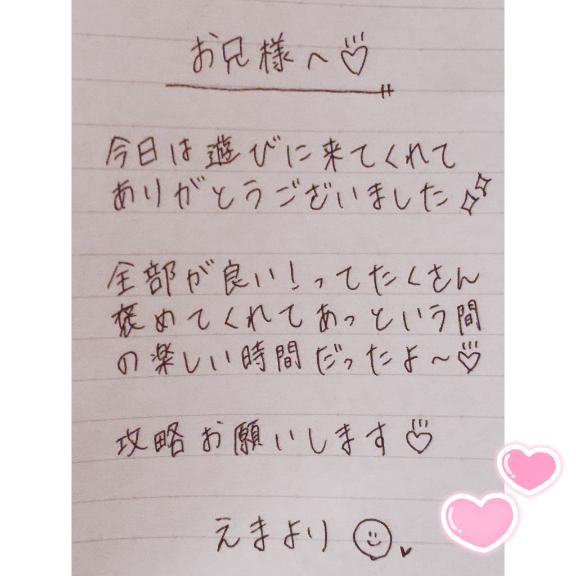 お兄様へ♡
今日は遊びに来てくれて
ありがとうございました
全部が良い!ってたくさん
褒めてくれてあっという間
の楽しい時間だったよ〜♡
攻略お願いします♡
えまより